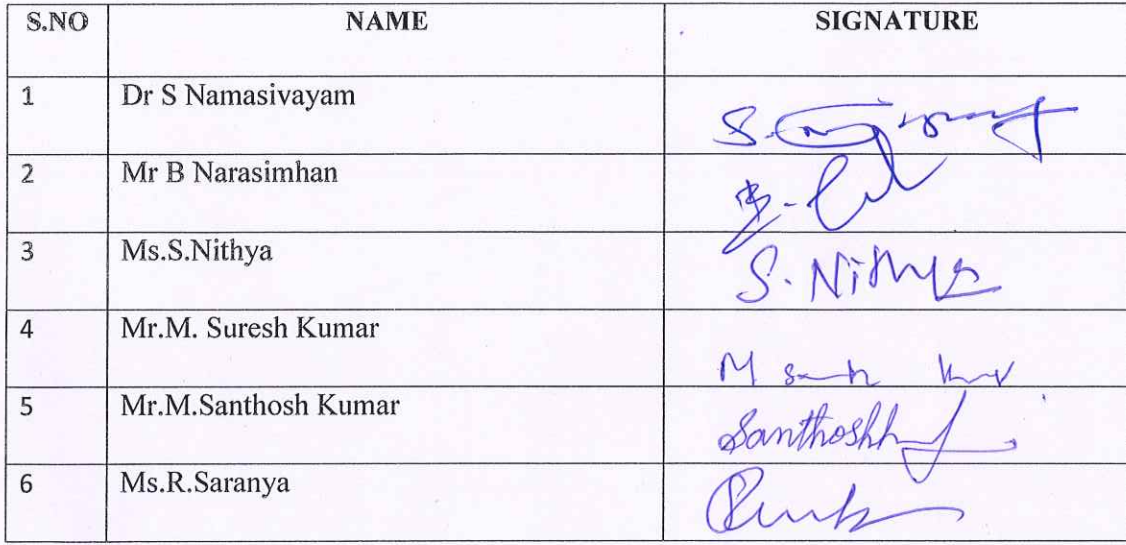 S.NO NAME SIGNATURE
1 Dr S Namasivayam S.
2 Mr B Narasimhan B.
3 Ms.S.Nithya S. Nithya
4 Mr.M. Suresh Kumar M
5 Mr.M.Santhosh Kumar Santhoshk
6 Ms.R.Saranya